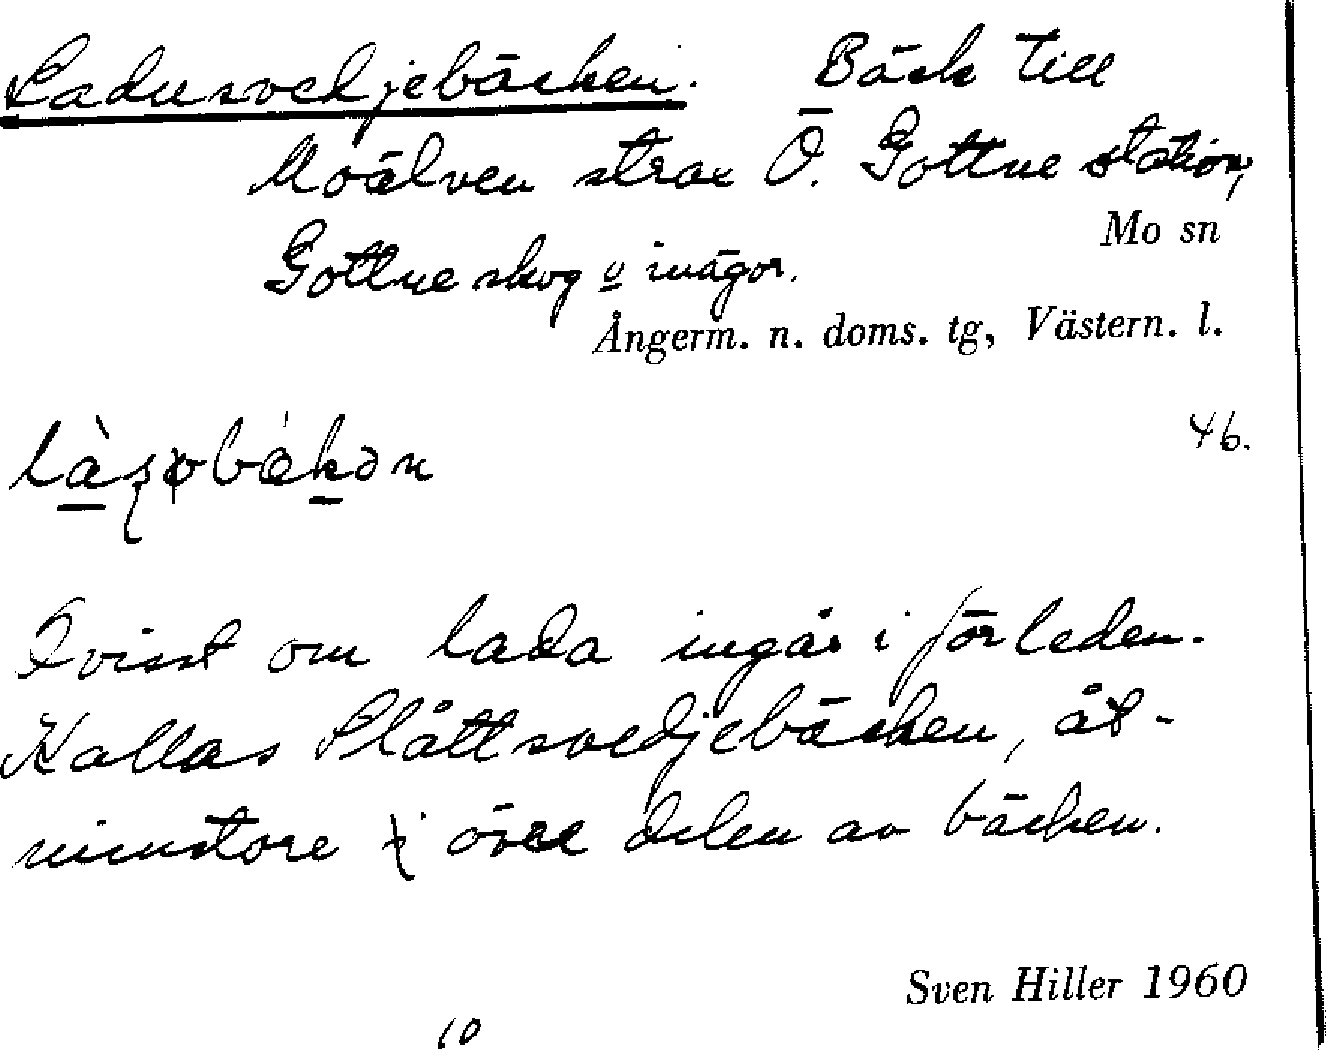 Ladusvedjebäcken. Bäck till
Moälven strax Ö. Gottne station,
Mo sn
Gottne skog o inägor.
Ångerm. n. doms. tg, Västern. l.
46.
Ovisst om lada ingår i förleden.
Kallas Slåttsvedjebäcken, åt-
minstone i övre delen av bäcken.
Sven Hiller 1960
10